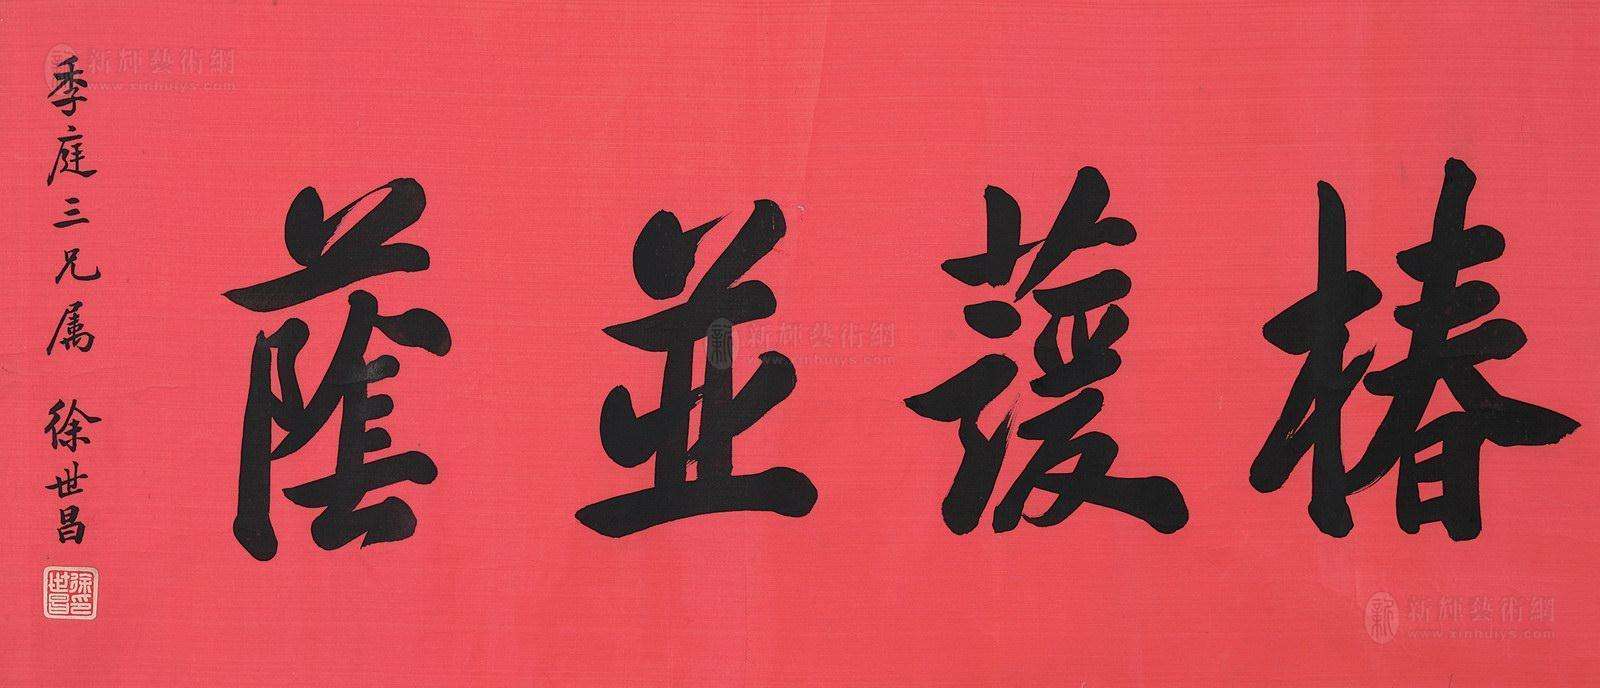 椿蕿並蔭
季庭三兄属 徐世昌
徐世昌印
新輝藝術網
www.xinhuiys.com
新輝藝術網
www.xinhuiys.com
新輝藝術網
www.xinhuiys.com